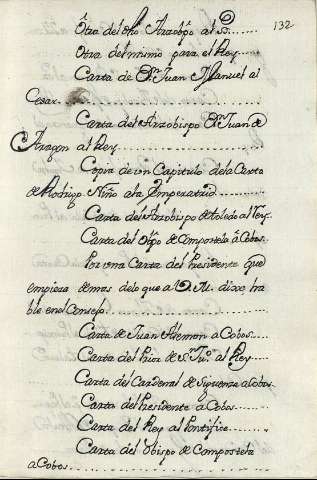 132
Otra del dho Arzobpo al P.
Otra del mismo para el Rey
Carta de Dn. Juan Manuel al
Cesar
Carta del Arzobispo Dn. Juan de
Aragon al Rey
Copia de un Capitulo de la Carta
de Rodrigo Niño a la Emperatriz
Carta del Arzobispo de Toledo al Rey
Carta del Obpo de Compostela á Cobos
Por una Carta del Presidente que
empieza de mas de lo que a V. M. dixo ha
ble en el Consejo
Carta de Juan Aleman a Cobos
Carta del Prior de Sn. Ju.º al Rey
Carta del Cardenal de Siguenza a Cobos
Carta del Presidente a Cobos
Carta del Rey al Pontifice
Carta del Obispo de Compostela
a Cobos